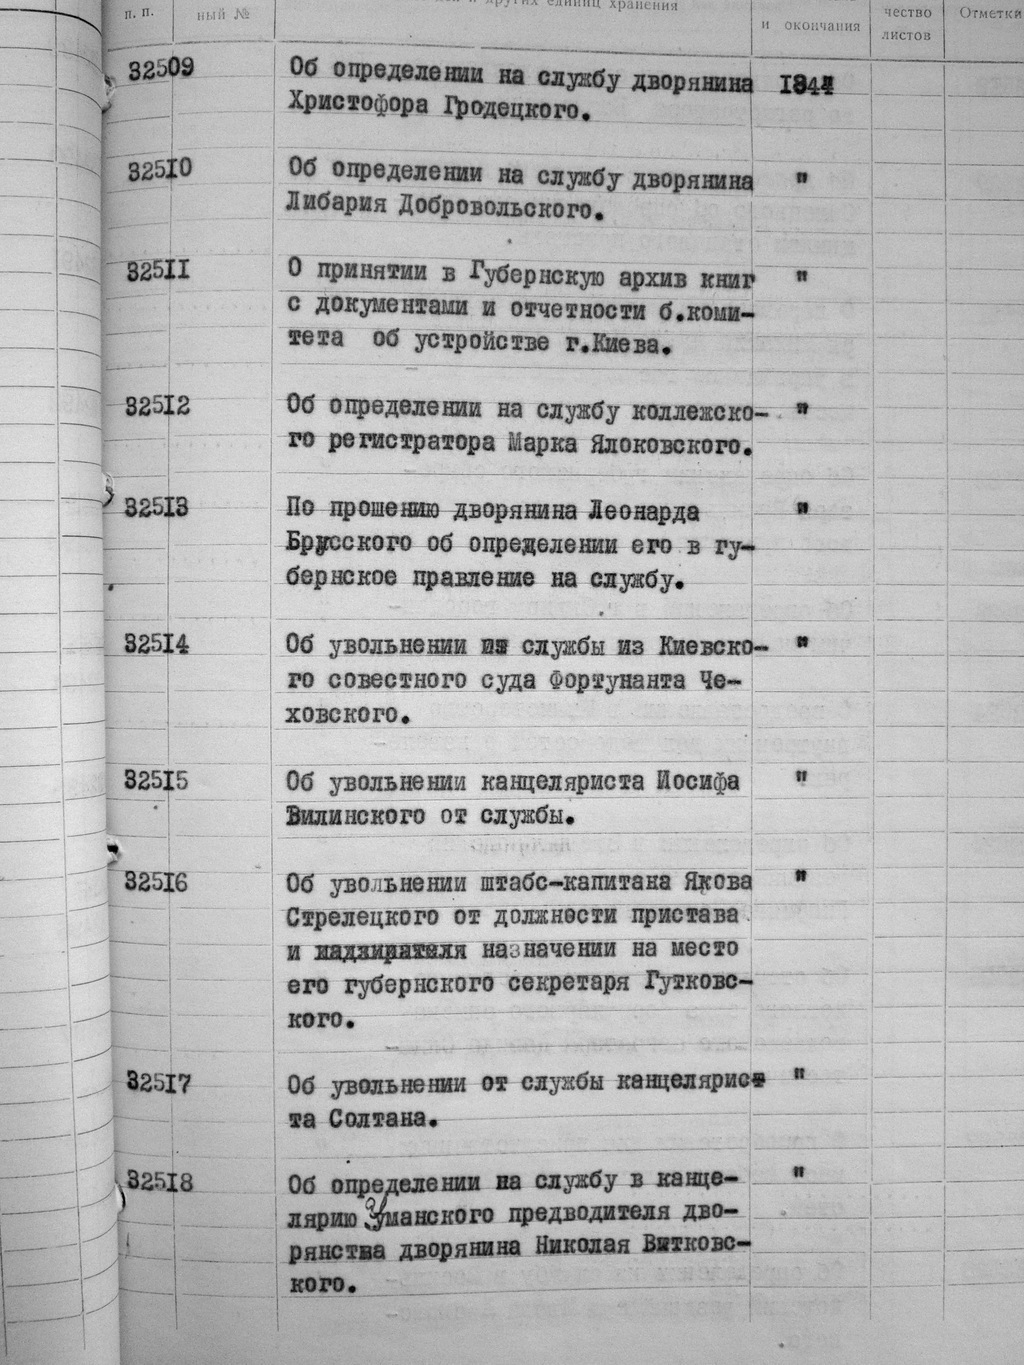 и других единиц хранения
п. п.
ный №
и окончания
чество
листов
Отметки
32509 Об определении на службу дворянина 1844
Христофора Гродецкого.
32510 Об определении на службу дворянина "
Либария Добровольского.
32511 О принятии в Губернскую архив книг "
с документами и отчетности б.коми-
тета об устройстве г.Киева.
32512 Об определении на службу коллежско- "
го регистратора Марка Ялоковского.
32513 По прошению дворянина Леонарда "
Брусского об определении его в гу-
бернское правление на службу.
32514 Об увольнении из службы из Киевско- "
го совестного суда Фортунанта Че-
ховского.
32515 Об увольнении канцеляриста Иосифа "
Вилинского от службы.
32516 Об увольнении штабс-капитана Якова "
Стрелецкого от должности пристава
и надзирателя назначении на место
его губернского секретаря Гутковс-
кого.
32517 Об увольнении от службы канцелярис "
та Солтана.
32518 Об определении на службу в канце- "
лярию Уманского предводителя дво-
рянства дворянина Николая Витковс-
кого.